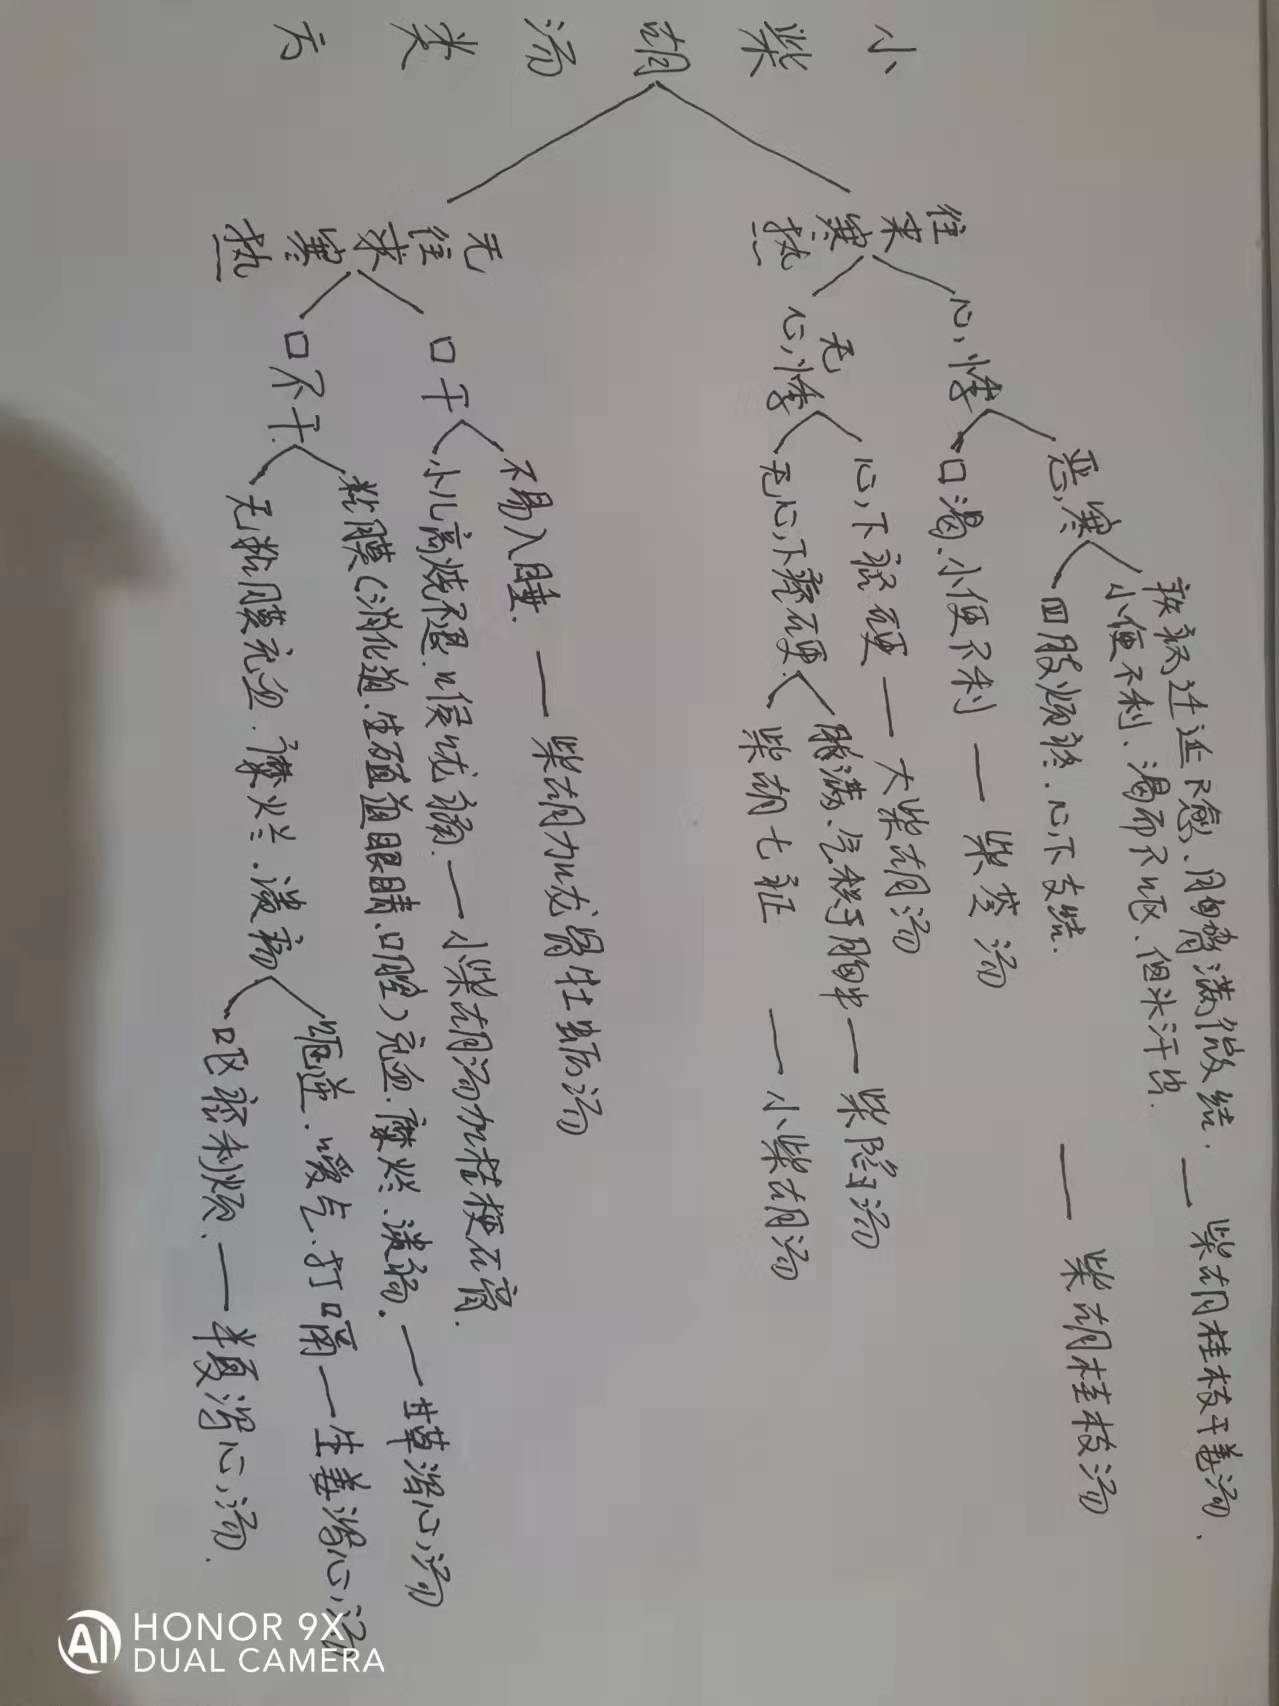 小柴胡汤类方
往来寒热
心悸
恶寒
小便不利、渴而不呕、但头汗出.
迁延不愈、胸胁满微结. — 柴胡桂枝干姜汤.
四肢烦疼.心下支结. — 柴胡桂枝汤
口渴、小便不利 — 柴苓汤
无心悸
心下痞硬 — 大柴胡汤
无心下痞硬
胀满、气积于胸中 — 柴陷汤
柴胡七证 — 小柴胡汤
无往来寒热
口干
不易入睡. — 柴胡加龙骨牡蛎汤
小儿高烧不退.喉咙痛. — 小柴胡汤加桔梗石膏.
口不干.
粘膜(消化道.生殖道眼睛.口腔)充血.糜烂.溃疡. — 甘草泻心汤
无粘膜充血.糜烂.溃疡
呃逆.嗳气.打嗝 — 生姜泻心汤
呕痞利烦. — 半夏泻心汤.
AI HONOR 9X
DUAL CAMERA